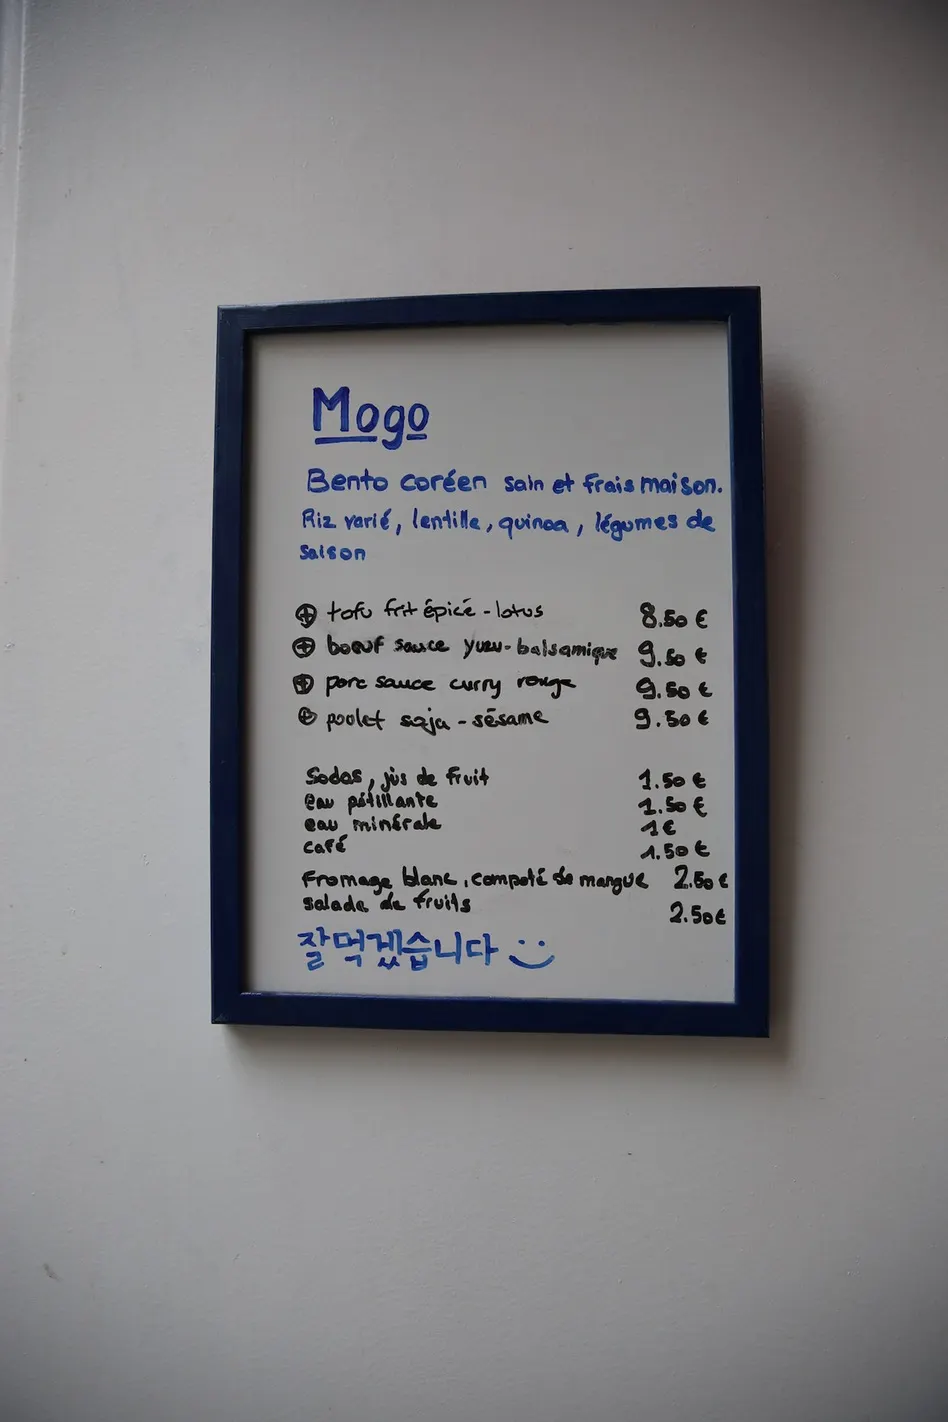 Mogo
Bento coréen sain et frais maison.
Riz varié, lentille, quinoa, légumes de
saison
⊕ tofu frit épicé - lotus 8.50 €
⊕ boeuf sauce yuzu - balsamique 9.50 €
⊕ porc sauce curry rouge 9.50 €
⊕ poulet soja - sésame 9.50 €
Sodas, jus de fruit 1.50 €
eau pétillante 1.50 €
eau minérale 1 €
café 1.50 €
Fromage blanc, compoté de mangue 2.50 €
salade de fruits 2.50 €
잘먹겠습니다 :)